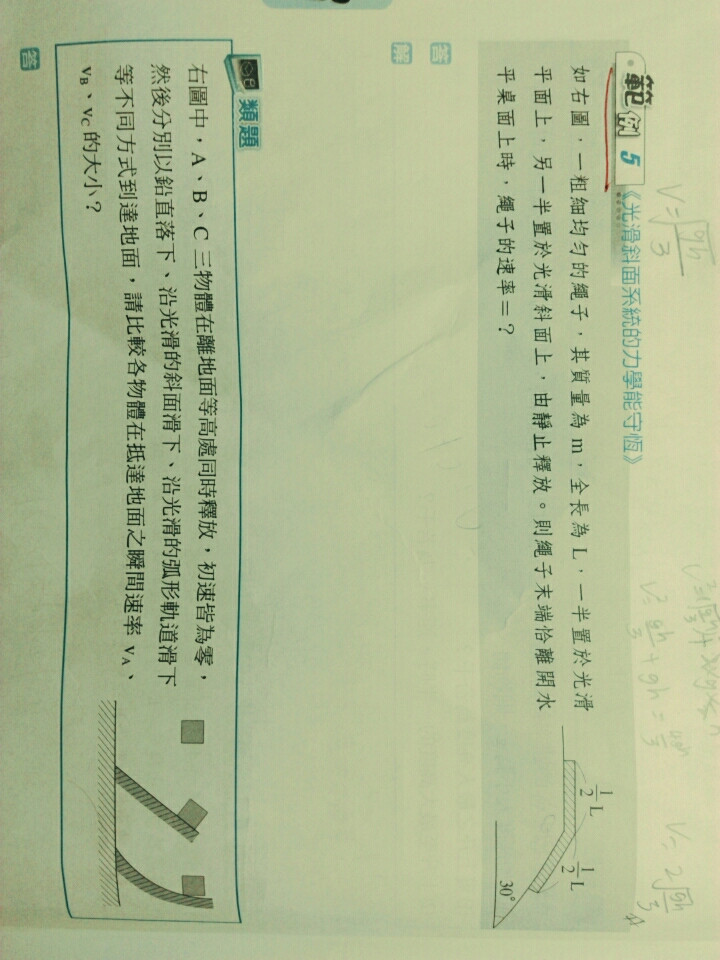 範例 5 《光滑斜面系統的力學能守恆》
如右圖,一粗細均勻的繩子,其質量為 m,全長為 L,一半置於光滑
平面上,另一半置於光滑斜面上,由靜止釋放。則繩子末端恰離開水
平桌面上時,繩子的速率=?
1/2 L
1/2 L
30°
答
解
類題
右圖中,A、B、C 三物體在離地面等高處同時釋放,初速皆為零,
然後分別以鉛直落下、沿光滑的斜面滑下、沿光滑的弧形軌道滑下
等不同方式到達地面,請比較各物體在抵達地面之瞬間速率 vA、
vB、vC 的大小?
答